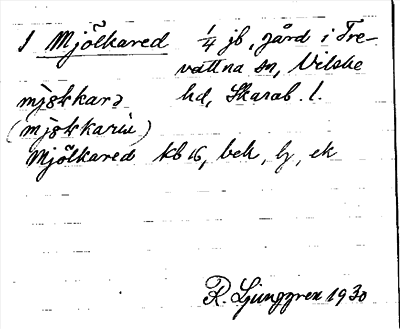 1 Mjölkared 1/4 jb, gård i Tre-
vattna sn, Vilske
hd, Skarab. l.
mjɵkkarə
(mjɵkkariu)
Mjölkared kb 16, beh, lj, ek
R. Ljunggren 1930